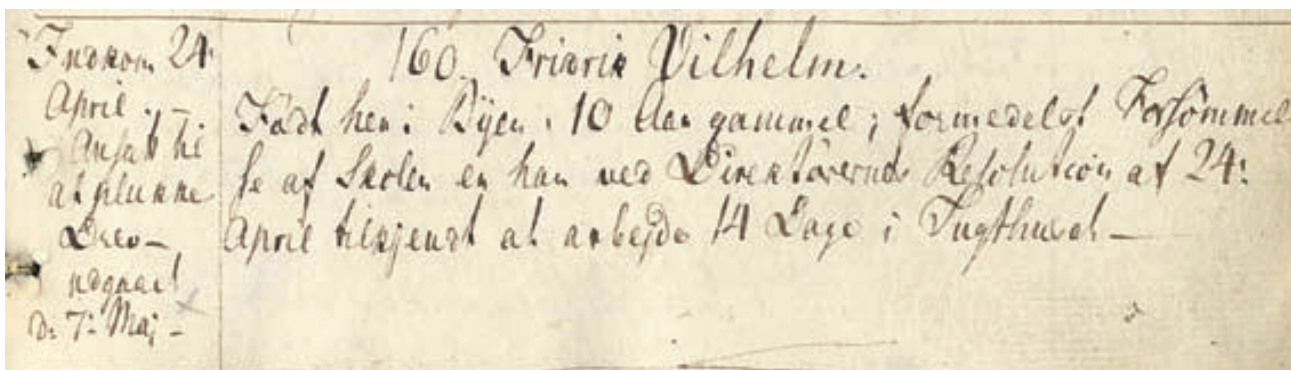 Indkom 24
April. –
Ansat til
at plukke
Drev –
udgaaet
d. 7: Maj –
160. Fridrik Vilhelm.
Födt her i Byen, 10 Aar gammel; formedelst Forsömmel
se af Skolen er han ved Direktörernes Resolution af 24:
April tilkjendt at arbejde 14 Dage i Tugthuset –